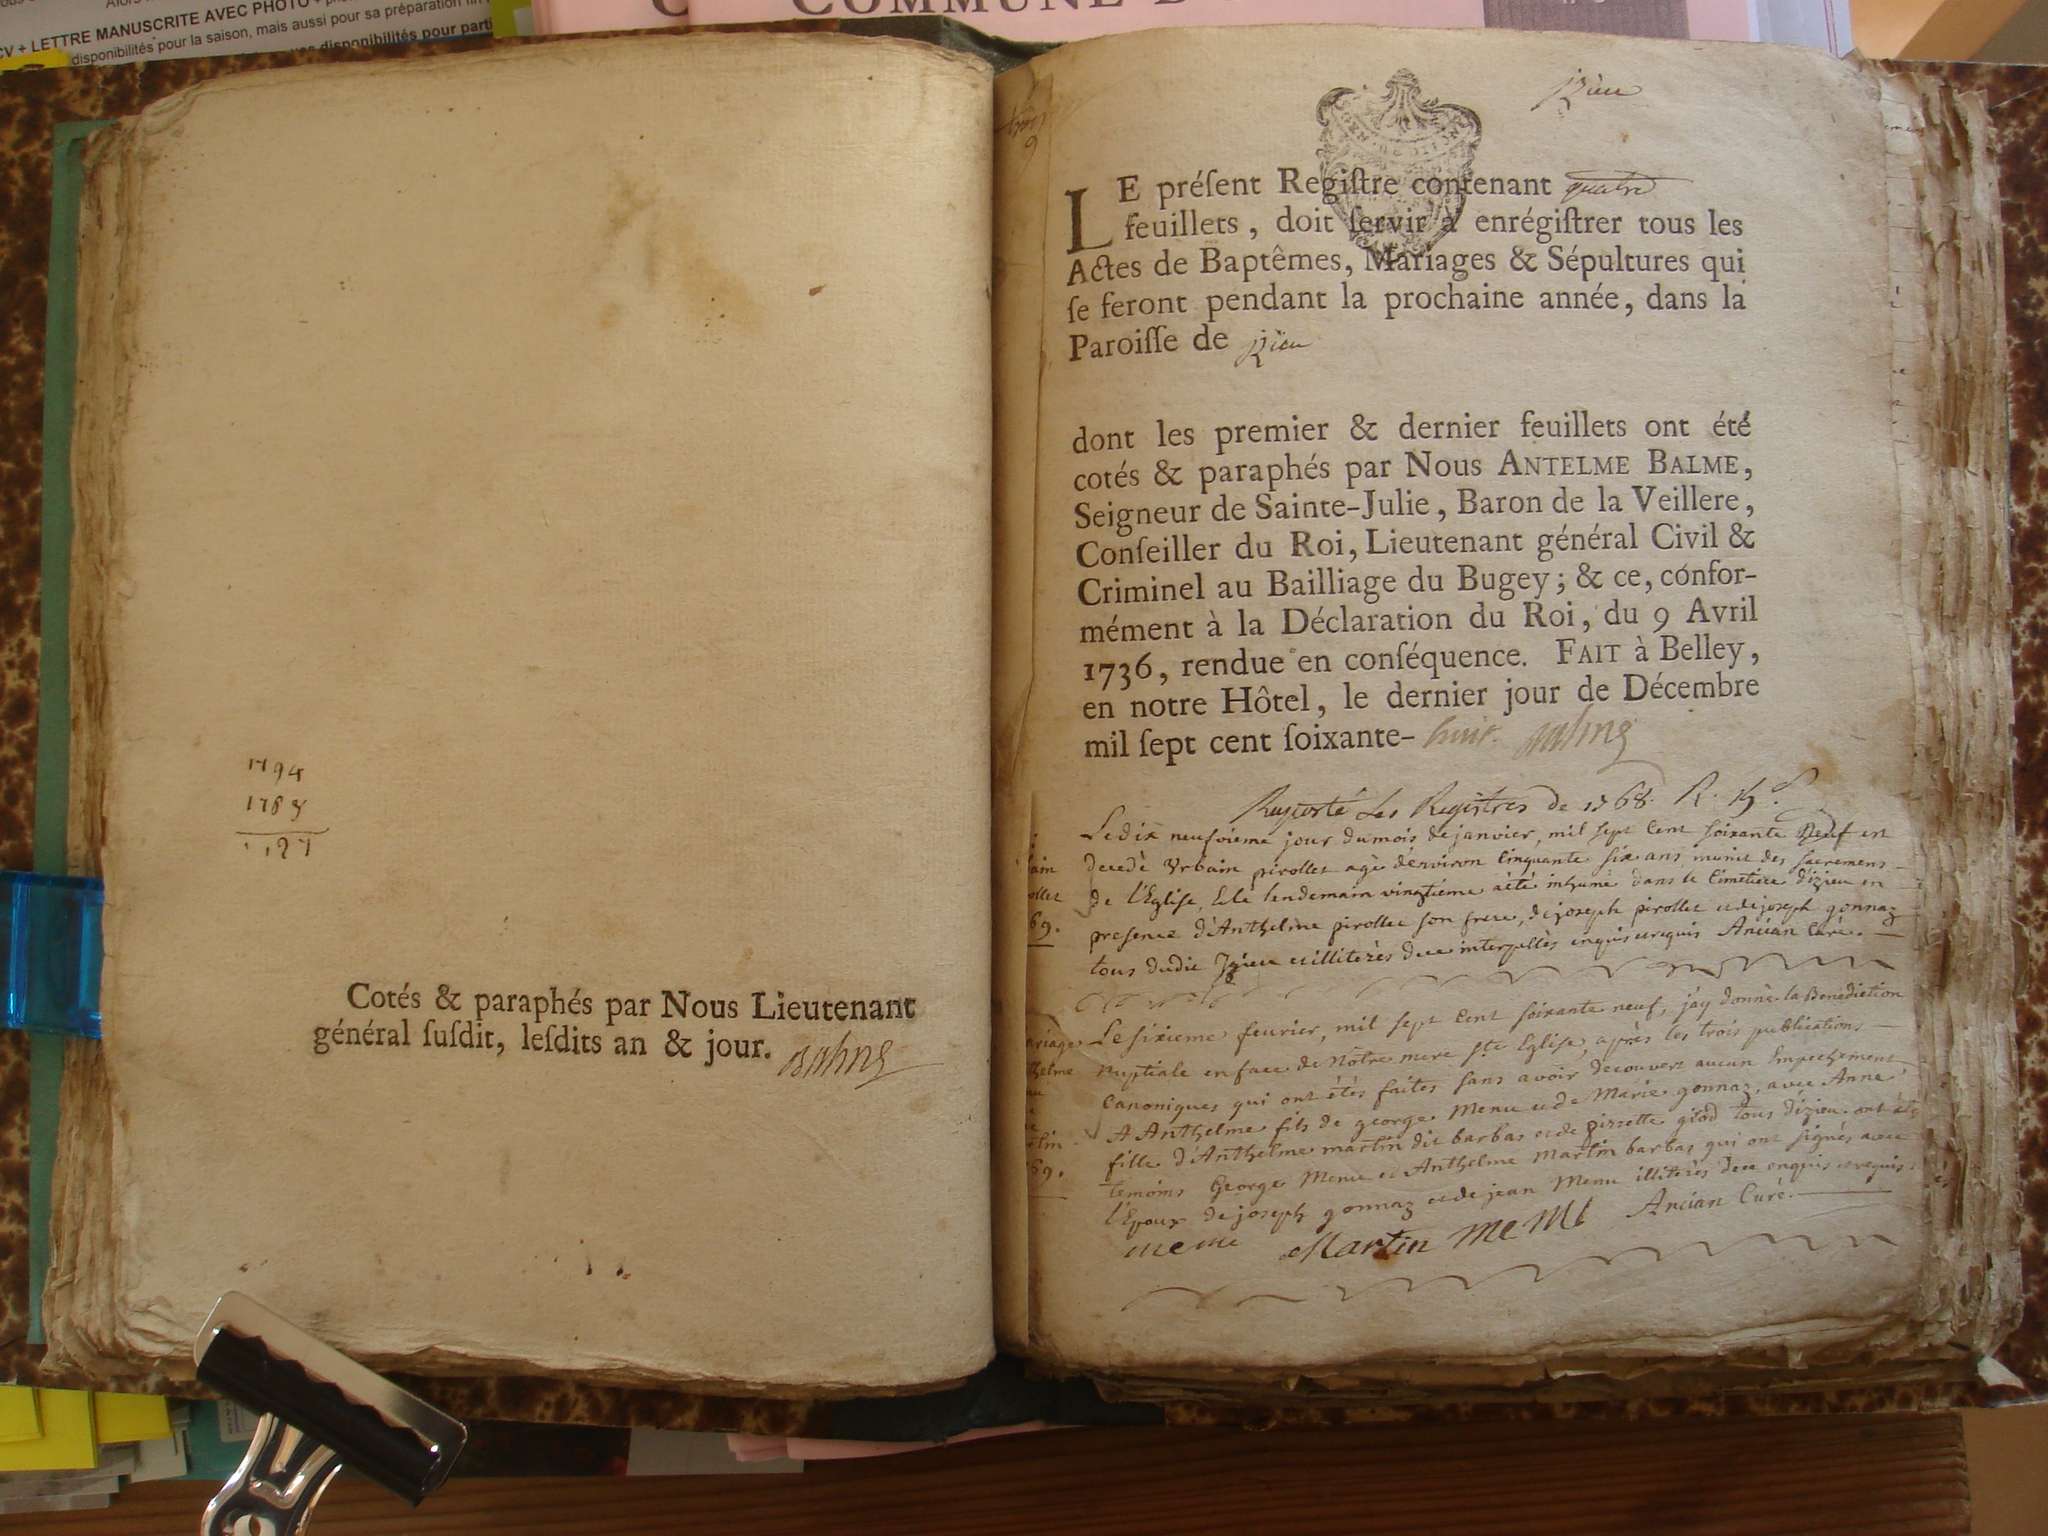 CV + LETTRE MANUSCRITE AVEC PHOTO +
disponibilités pour la saison, mais aussi pour sa préparation
disponibilités pour
COMMUNE D
1794
1769
Cotés & paraphés par Nous Lieutenant
général ſuſdit, leſdits an & jour. Balme
Izieu
LE préſent Regiſtre contenant quatre
feuillets, doit ſervir à enrégiſtrer tous les
Actes de Baptêmes, Mariages & Sépultures qui
ſe feront pendant la prochaine année, dans la
Paroiſſe de Izieu
dont les premier & dernier feuillets ont été
cotés & paraphés par Nous ANTELME BALME,
Seigneur de Sainte-Julie, Baron de la Veillere,
Conſeiller du Roi, Lieutenant général Civil &
Criminel au Bailliage du Bugey; & ce, confor-
mément à la Déclaration du Roi, du 9 Avril
1736, rendue en conſéquence. FAIT à Belley,
en notre Hôtel, le dernier jour de Décembre
mil ſept cent ſoixante- huit. Balme
Raporté Les Registres de 1768.
Le dix neufvieme jour du mois de janvier, mil sept Cent soixante Neuf est
decedè Urbain pirollet agè d'environ Cinquante six ans munit des sacremens
de l'Eglise, et le lendemain vingtième a été inhumé dans le Cimetière d'izieu en
presence d'Anthelme pirollet son frere, de joseph pirollet et de joseph gonnaz
tous dudit Izieu et illiterès de ce interpellès enquis et requis Ancian Curé.
Le sixieme fevrier, mil sept Cent soixante neuf, j'ay donnè la Benediction
Nuptiale en face de Nôtre mere ste Eglise, après les trois publications
Canoniques qui ont étès faites sans avoir decouvert aucun Empechement
A Anthelme fils de george Menu et de Marie gonnaz, avec Anne
fille d'Anthelme martin dit barbas et de pierrette giod tous d'izieu. ont été
temoins George Menu et Anthelme Martin barbas qui ont signés avec
l'Epoux de joseph gonnaz et de jean Menu illiterès de ce enquis et requis
Martin Ancian Curé.